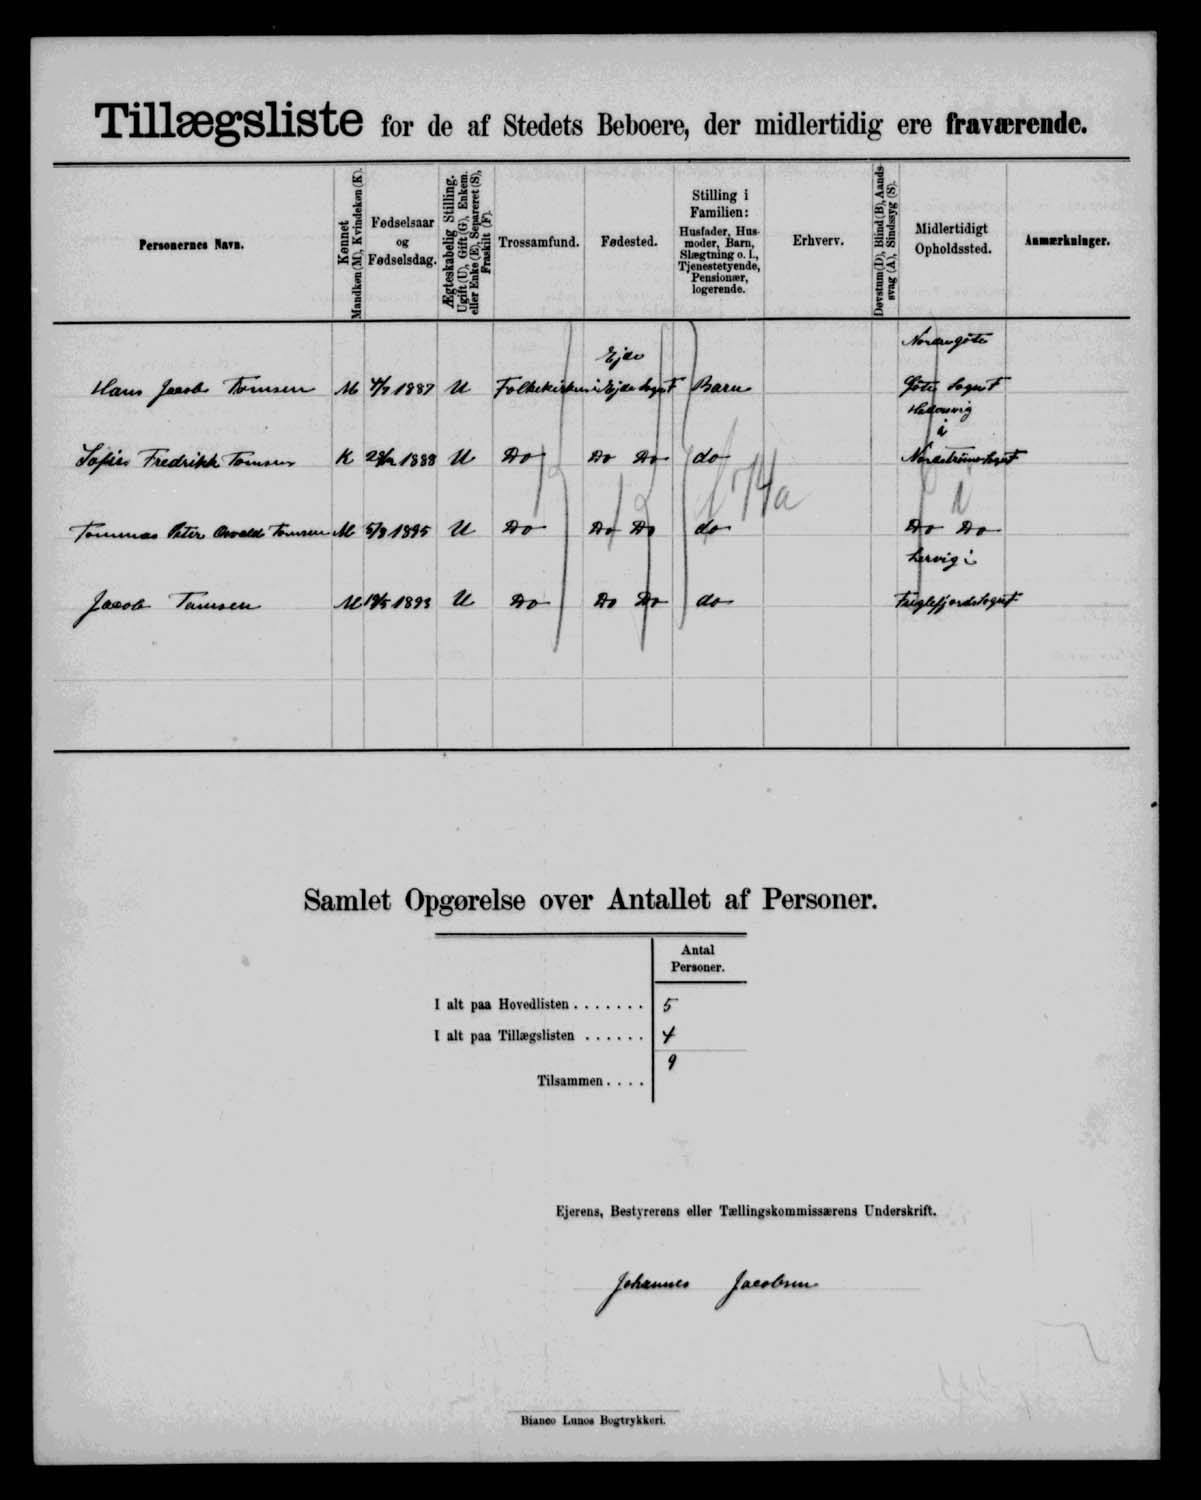 Tillægsliste for de af Stedets Beboere, der midlertidig ere fraværende.
Personernes Navn.
Kønnet
Mandkøn (M), Kvindekøn (K).
Fødselsaar
og
Fødselsdag.
Ægteskabelig Stilling.
Ugift (U), Gift (G), Enkem.
eller Enke (E), Separeret (S),
Fraskilt (F).
Trossamfund.
Fødested.
Stilling i
Familien:
Husfader, Hus-
moder, Barn,
Slægtning o. l.,
Tjenestetyende,
Pensionær,
logerende.
Erhverv.
Døvstum (D), Blind (B), Aands-
svag (A), Sindssyg (S).
Midlertidigt
Opholdssted.
Anmærkninger.
Ejde Nordregöte
Hans Jacob Tomsen M 1887 U Folkekirken i Ejde Sogn Barn Göte Sogn
i
Sofie Fredrikke Tomsen K 1888 U Do Do Do do
174a i
Tommas Peter Osvald Tomsen M 5/8 1895 U Do Do Do do Do Do
Lervig i
Jacob Tomsen M 1893 U Do Do Do do Fuglefjord Sogn
Samlet Opgørelse over Antallet af Personer.
Antal
Personer.
I alt paa Hovedlisten . . . . . . . 5
I alt paa Tillægslisten . . . . . . 4
9
Tilsammen . . . .
Ejerens, Bestyrerens eller Tællingskommissærens Underskrift.
Johannes Jacobsen
Bianco Lunos Bogtrykkeri.